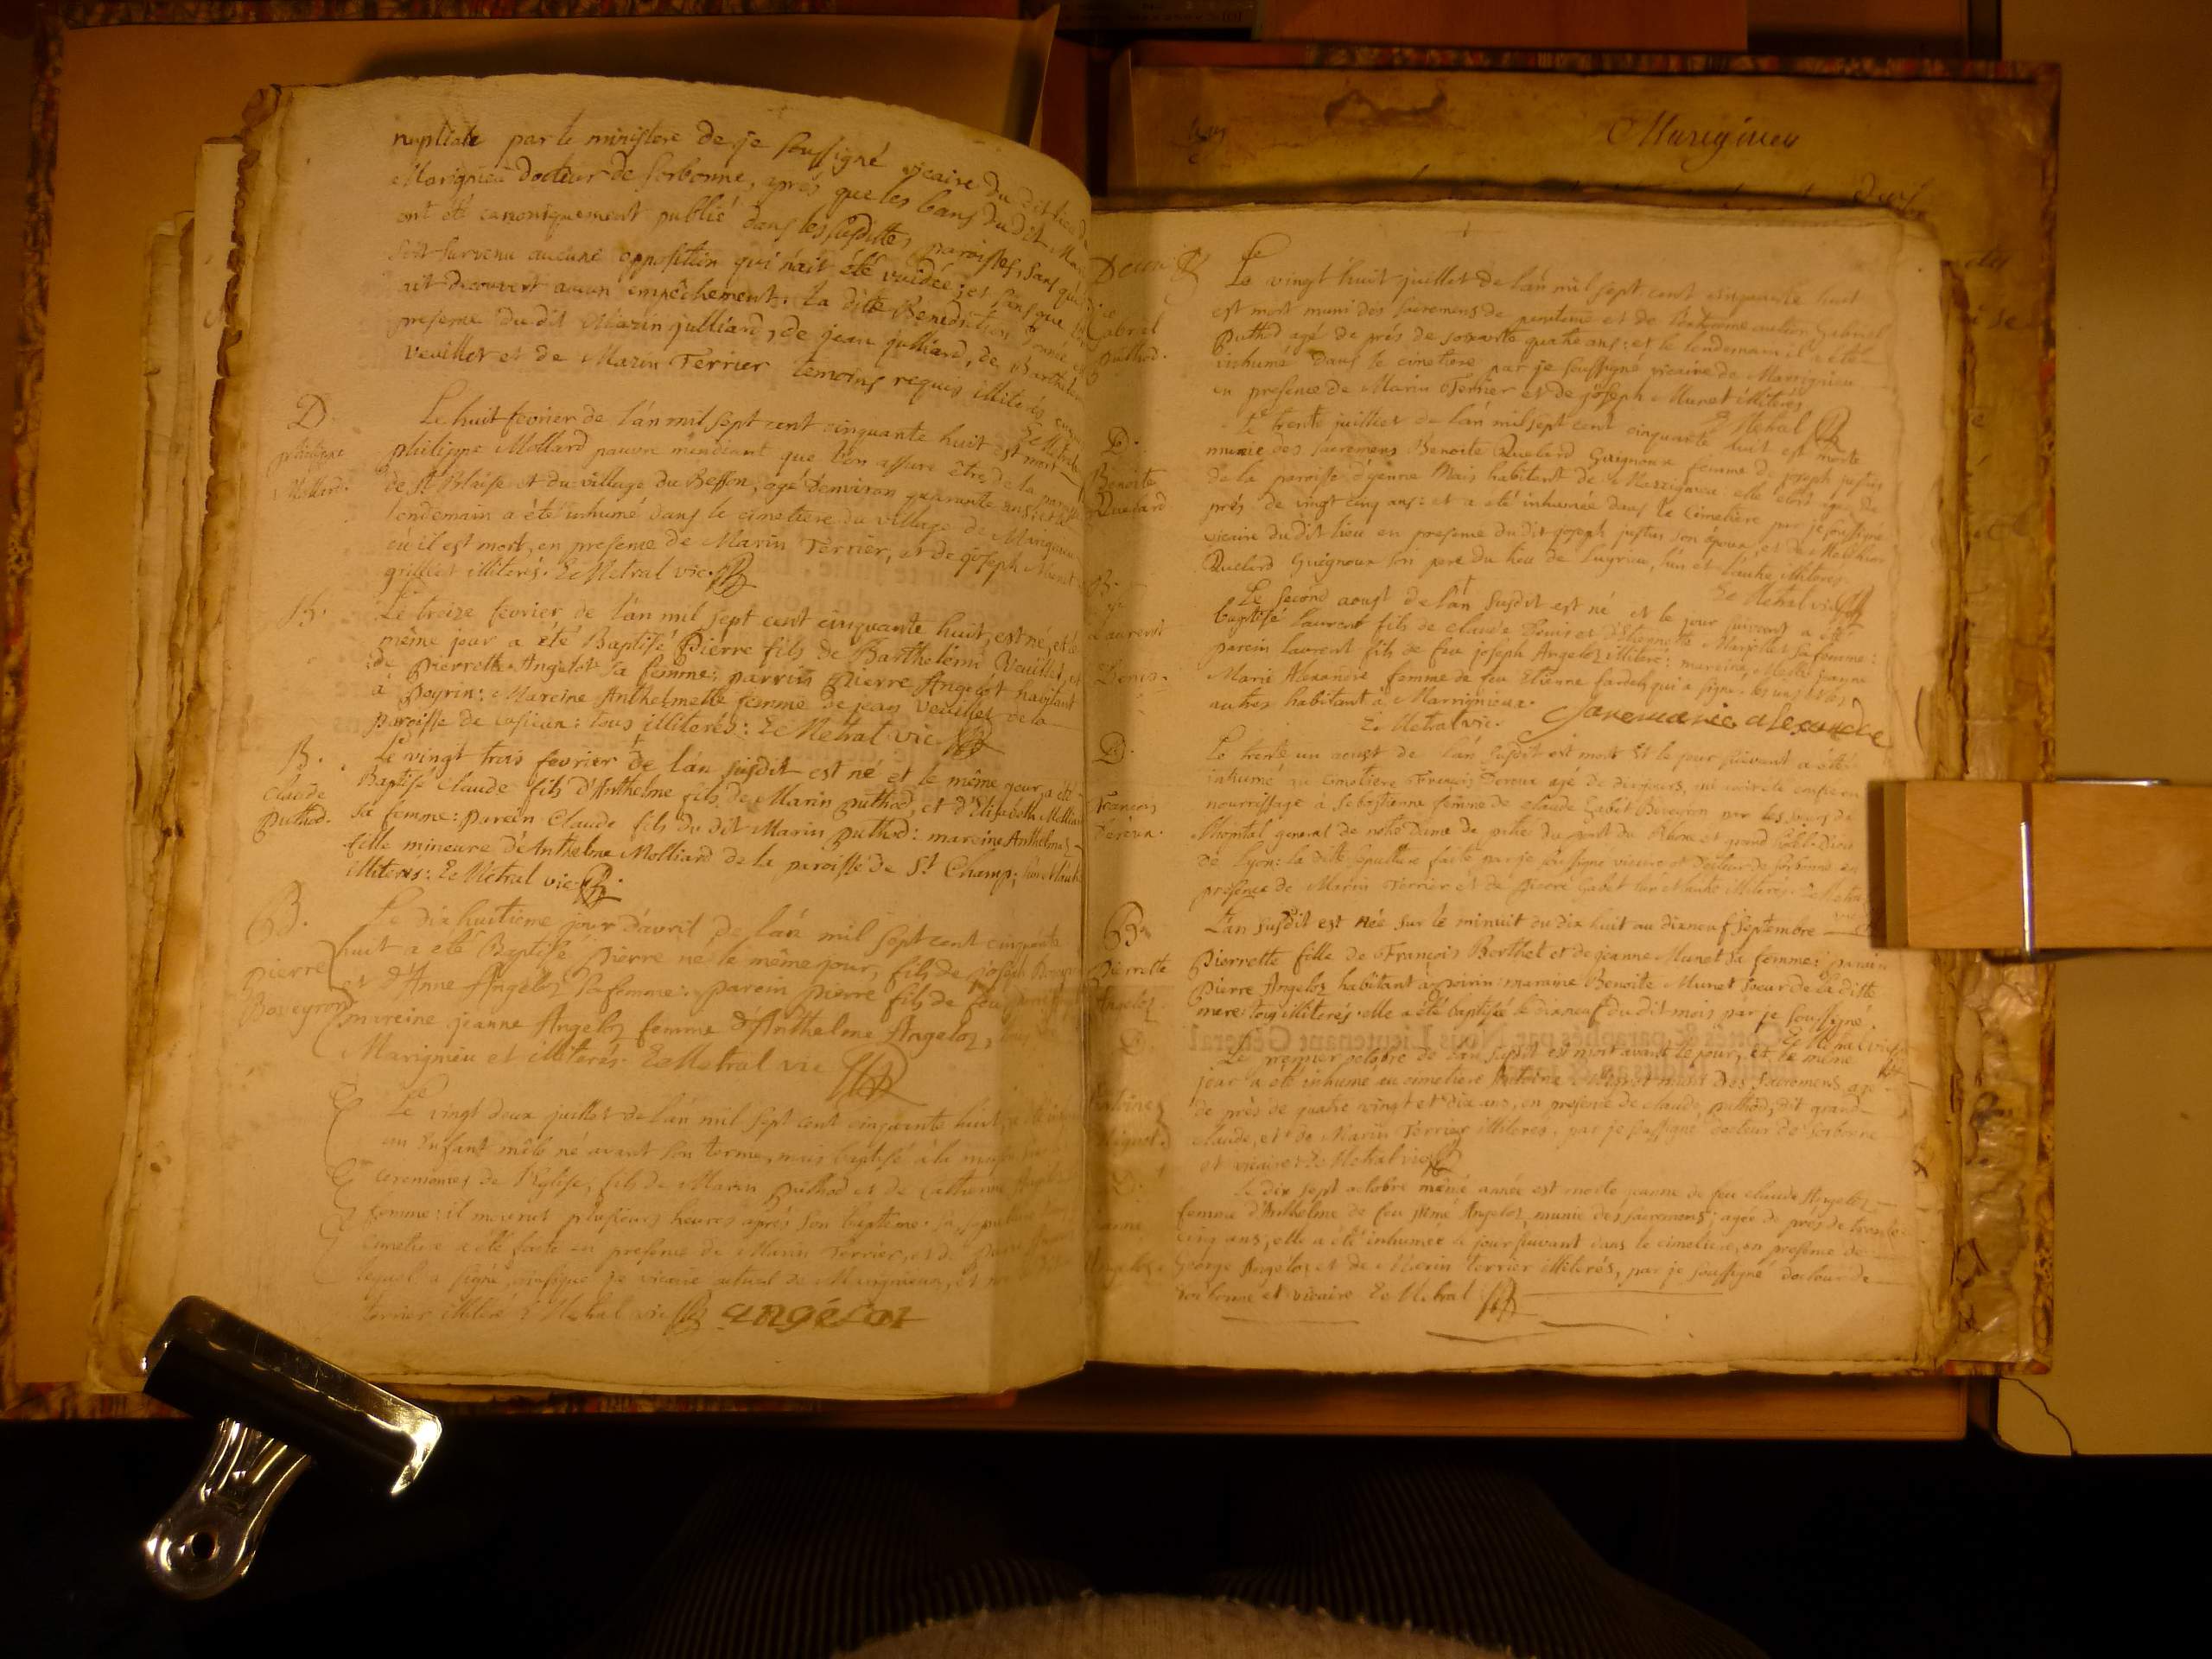 nuptiale par le ministere de je soussigné vicaire du dit lieu de
Marignieu docteur de Sorbonne, après que les bans du dit Mar
ont été canoniquement publié dans les susdittes paroisses, sans qu'il
soit survenu aucune opposition qui n'ait été vuidée; et sans que
ait decouvert aucun empêchement. La ditte Benediction donnée en
presence du dit Marin julliard, de jean julliard, de Barthelemi
Veuillet et de Marin Terrier temoins requis illiterés
Ec Metral
D.
philippe
Mollard.
Le huit fevrier de l'an mil sept cent cinquante huit est mort
philippe Mollard pauvre mendiant que l'on assure être de la paroisse
de St Blaise et du village du Besson, agé d'environ quarante ans, et le
lendemain a été inhumé dans le cimetiere du village de Marignieu
où il est mort, en presence de Marin Terrier, et de joseph Munet
grillet illiterés. Ec Metral vic.
B.
Le treize fevrier de l'an mil sept cent cinquante huit, est né, et le
même jour a été Baptisé Pierre fils de Barthelemi Veuillet, et
de Pierrette Angelot sa femme; parrin pierre Angelot habitant
à Poyrin: Mareine Anthelmette femme de jean Veuillet de la
paroisse de : tous illiterés: Ec Metral vic
B.
Claude
puthod.
Le vingt trois fevrier de l'an susdit est né et le même jour a été
Baptisé Claude fils d'Anthelme fils de Marin puthod, et d'Elisabeth Molliard
sa femme: parein Claude fils du dit Marin puthod: mareine Anthelme
fille mineure d'Anthelme Molliard de la paroisse de St Champ; l'un et l'autre
illiterés: Ec Metral vic.
B.
Pierre
Boveyron
Le dix huitieme jour d'avril de l'an mil sept cent cinquante
huit a été Baptisé Pierre né le même jour, fils de joseph Boveyron
et d'Anne Angeloz sa femme: parein pierre fils de feu
mareine jeanne Angeloz femme d'Anthelme Angeloz, tous de
Marignieu et illiterés. Ec Metral vic
Le vingt deux juillet de l'an mil sept cent cinquante huit
un Enfant mâle né avant son terme, mais baptisé à la maison
ceremonies de l'Eglise, fils de Marin puthod et de Catherine
femme: il mourut plusieurs heures après son baptême. sa sepulture
cimetiere a été faite en presence de Marin Terrier, et de
lequel a signé, je vicaire actuel de Marignieu, et
Terrier illitéré Ec Metral vic angélot
Marignieu
D.
Gabriel
puthod.
Le vingt huit juillet de l'an mil sept cent cinquante huit
est mort muni des sacremens de penitence et de l'extreme onction Gabriel
puthod agé de près de soixante quatre ans: et le lendemain il a été
inhumé dans le cimetiere par je soussigné vicaire de Marrignieu
en presence de Marin Terrier et de joseph Munet illiterés
Ec Metral
D.
Benoite
Quelard
Le trente juillet de l'an mil sept cent cinquante huit est morte
munie des sacremens Benoite Quelard Guignoux femme de joseph justin
de la paroisse d'yenne Mais habitant de Marrignieu elle étoit agée de
près de vingt cinq ans: et a été inhumée dans le cimetiere par je soussigné
vicaire du dit lieu en presence du dit joseph justin son époux, et de Melchior
Quelard Guignoux son pere du lieu de Lugrieu, l'un et l'autre illiterés.
Ec Metral vic
B.
Laurent
Denis.
Le second aoust de l'an susdit est né et le jour suivant a été
baptisé laurent fils de claude Denis et d'Etiennette Marchet sa femme:
parein laurent fils de feu joseph Angeloz illiteré: mareine, Melle jeanne
Marie Alexandre femme de feu Etienne qui a signé les uns et les
autres habitant à Marrignieux.
Ec Metral vic. Janemarie alexandre
D.
François
Dereux.
Le trente un aoust de l'an susdit est mort et le jour suivant a été
inhumé au cimetiere François Dereux agé de dix jours, en
nourrissage à Sebastienne femme de claude Gabet Boveyron par les sœurs de
l'hôpital general de notre Dame de pitié du pont du Rhône et grand hôtel-Dieu
de Lyon: la ditte sepulture faite par je soussigné vicaire et Docteur de Sorbonne en
presence de Marin Terrier et de Pierre Gabet l'un et l'autre illiterés. Ec Metral
vic
B.
Pierrette
Angeloz.
L'an susdit est née sur le minuit du dix huit au dixneuf septembre
Pierrette fille de François Berthet et de jeanne Munet sa femme: parain
Pierre Angeloz habitant à poirin: maraine Benoite Munet sœur de la ditte
mere: tous illiterés. elle a été baptisée le dixneuf du dit mois par je soussigné.
Ec Metral vic
D.
Antoine
Mignet.
Le premier octobre de l'an susdit est mort avant le jour, et le même
jour a été inhumé au cimetiere Antoine Mignet muni des sacremens agé
de près de quatre vingt et dix ans, en presence de claude puthod, dit grand
claude, et de Marin Terrier illiterés. par je soussigné docteur de Sorbonne
et vicaire: Ec Metral vic
D.
jeanne
Angeloz.
Le dix sept octobre même année est morte jeanne de feu claude Angeloz
femme d'Anthelme de feu Angeloz, munie des sacremens; agée de près de trente
cinq ans, elle a été inhumée le jour suivant dans le cimetiere, en presence de
George Angeloz et de Marin terrier illiterés, par je soussigné docteur de
Sorbonne et vicaire Ec Metral